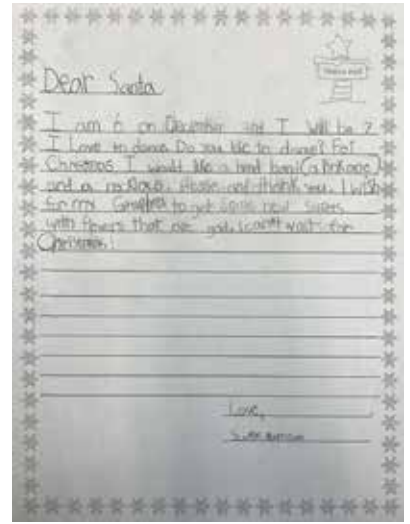 Dear Santa
I am 6 on December and I will be 7
I Love to dance. Do you like to dance? For
Christmas I would like a hand bag (a Pink one)
and a please and thank you. I wish
for my to get some new
with flowers that are gold. I can't wait for
Christmas!
Love,